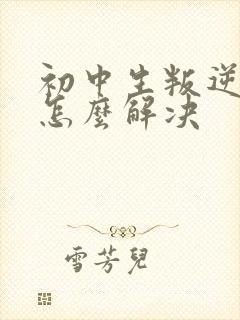 初中生叛逆
怎麼解决
雪芳兒